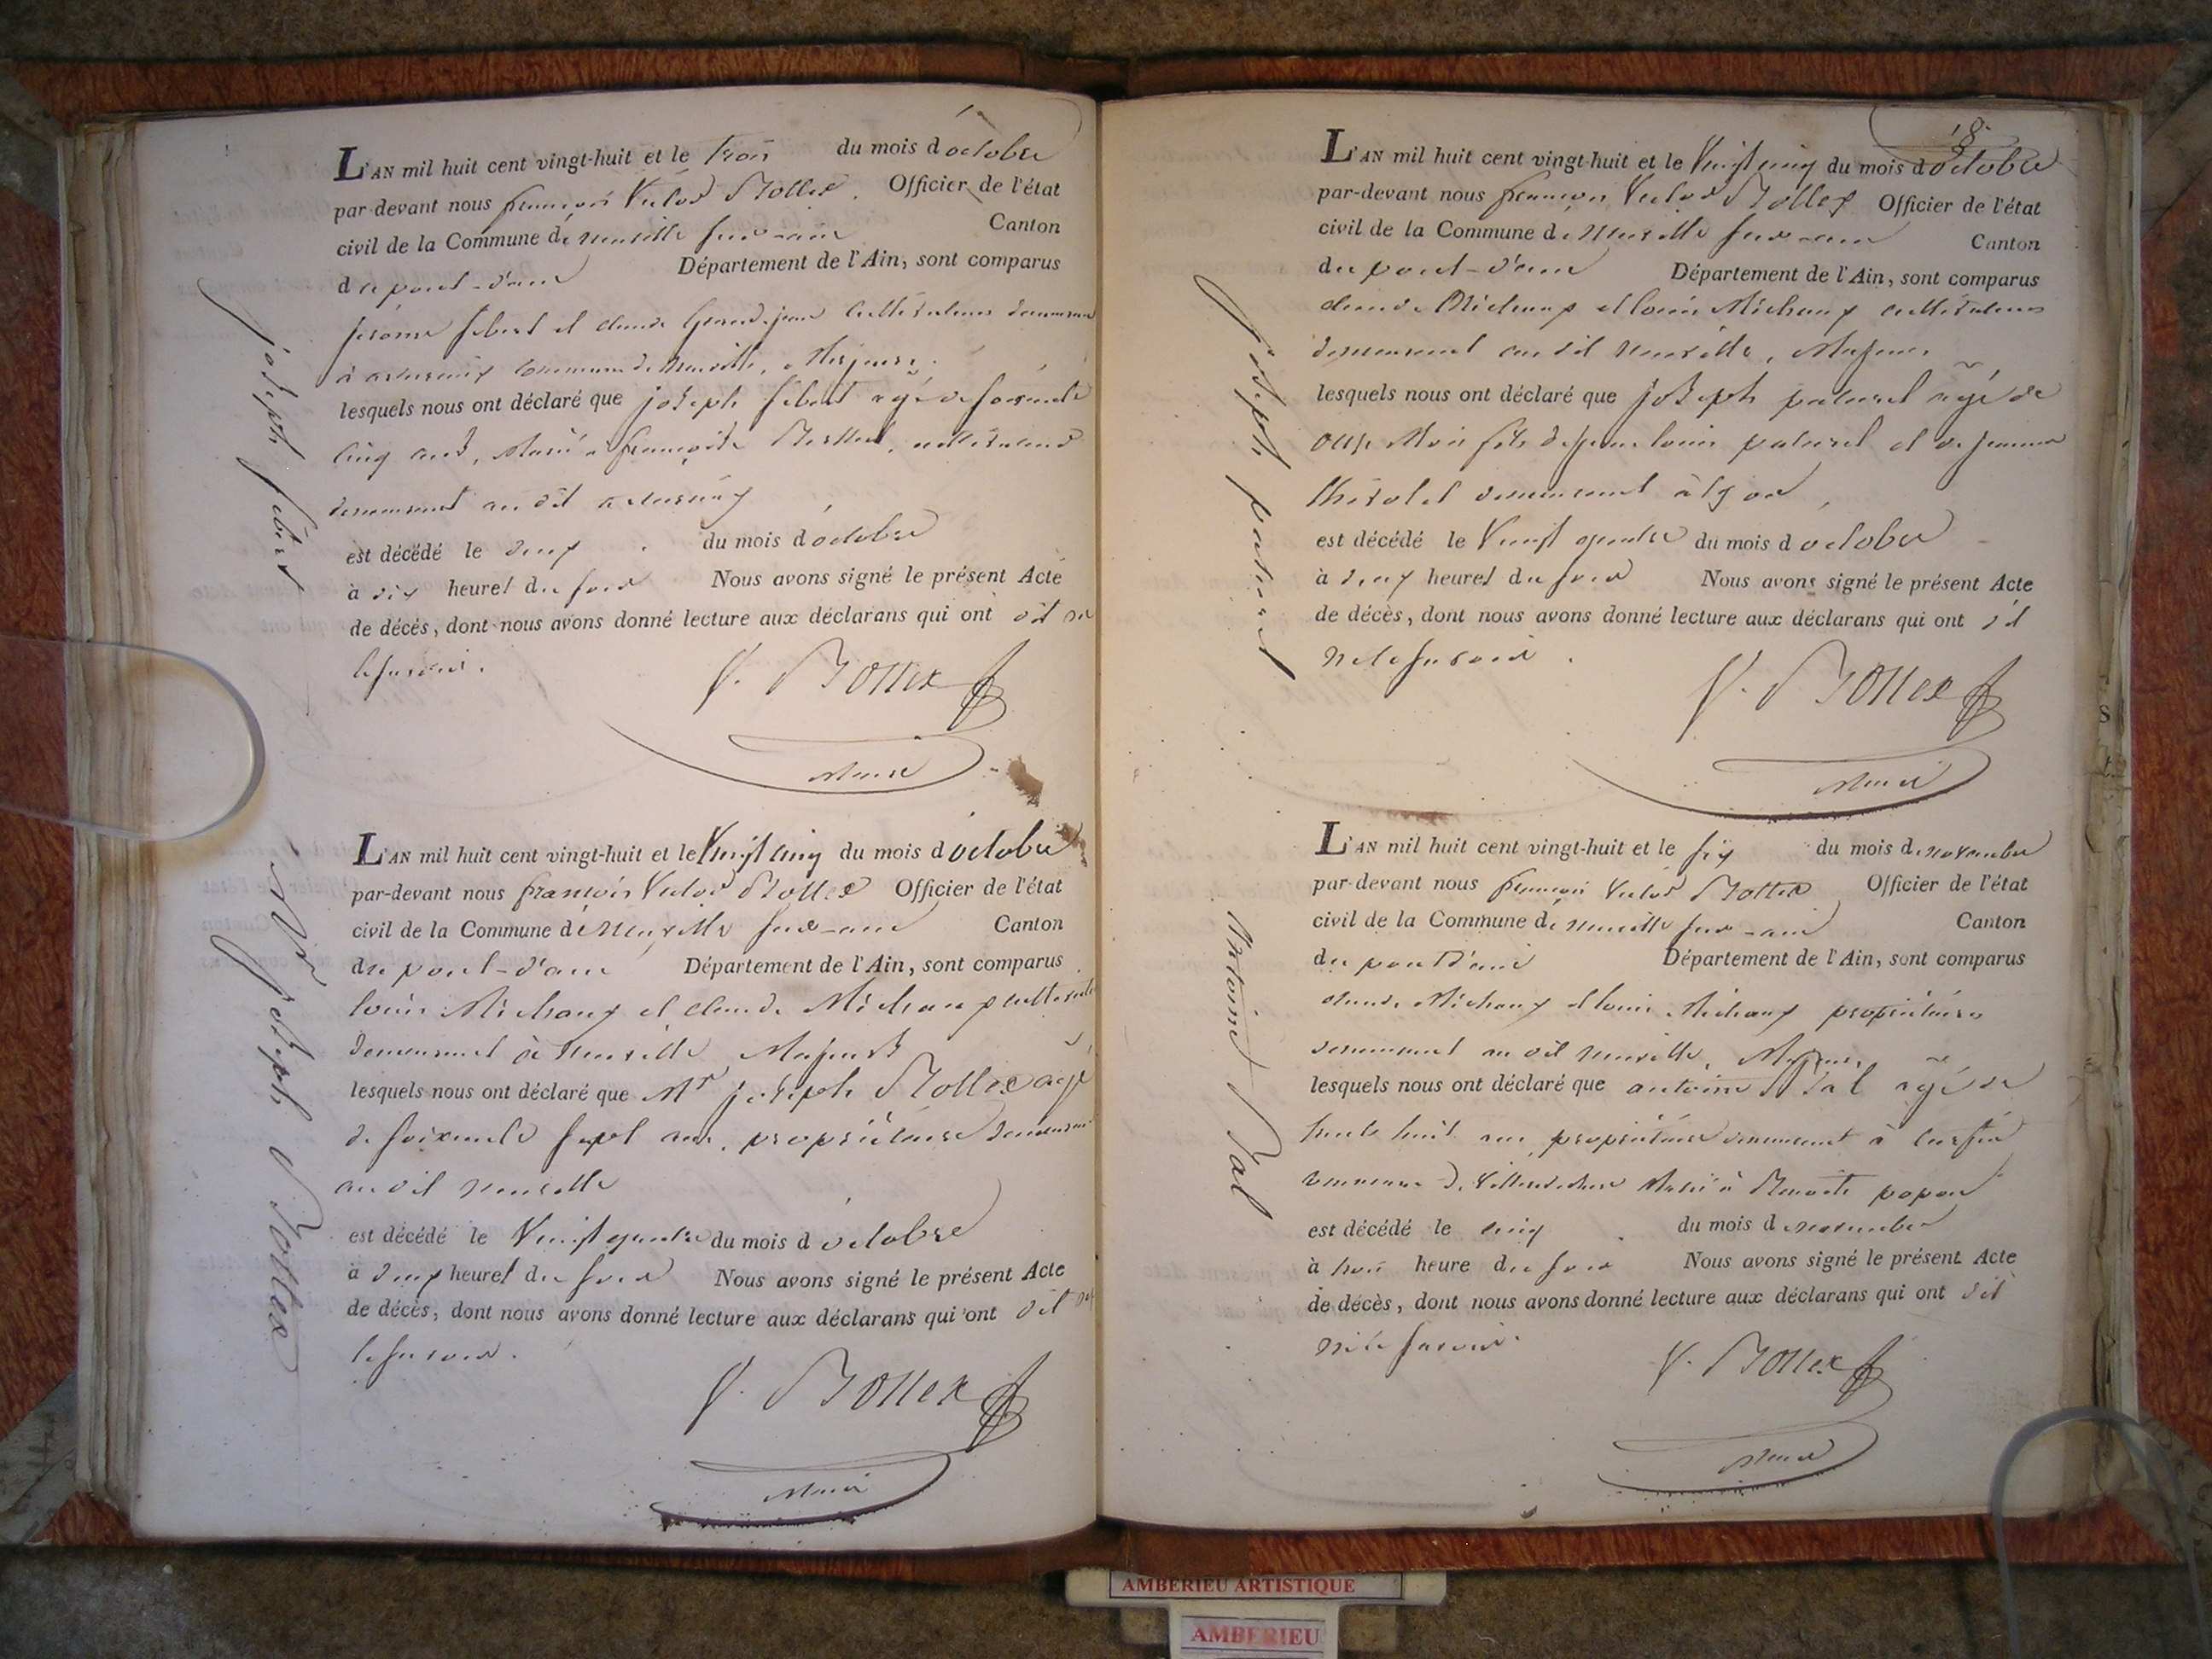 L'AN mil huit cent vingt-huit et le trois du mois d'octobre
par-devant nous françois Victor Bottex. Officier de l'état
civil de la Commune de neuville sur-ain Canton
du pont-d'ain Département de l'Ain, sont comparus
jérome febert et claude Grandjean cultivateurs demeurant
à commune de neuville, Majeurs.
lesquels nous ont déclaré que joseph febert agé de soixante
cinq ans, Marié à françoise cultivateur
demeurant au dit
est décédé le deux du mois d'octobre
à dix heures du soir Nous avons signé le présent Acte
de décès, dont nous avons donné lecture aux déclarans qui ont dit ne
le savoir.
V. Bottex
Maire
joseph febert
L'AN mil huit cent vingt-huit et le Vingt cinq du mois d'octobre
par-devant nous françois Victor Bottex Officier de l'état
civil de la Commune de Neuville sur-ain Canton
du pont-d'ain Département de l'Ain, sont comparus
louis Michaux et claude Michaux cultivateurs
demeurant à Neuville Majeurs
lesquels nous ont déclaré que Mr joseph Bottex agé
de soixante sept ans, propriétaire demeurant
au dit neuville
est décédé le Vingt quatre du mois d'octobre
à deux heures du soir Nous avons signé le présent Acte
de décès, dont nous avons donné lecture aux déclarans qui ont dit ne
le savoir.
V. Bottex
Maire
Mr joseph Bottex
18
L'AN mil huit cent vingt-huit et le Vingt cinq du mois d'octobre
par-devant nous françois Victor Bottex Officier de l'état
civil de la Commune de Neuville sur-ain Canton
du pont-d'ain Département de l'Ain, sont comparus
claude Michaux et louis Michaux cultivateurs
demeurant au dit neuville, Majeurs
lesquels nous ont déclaré que joseph paturel agé de
onze Mois fils de jean louis paturel et de jeanne
demeurant à lyon,
est décédé le Vingt quatre du mois d'octobre
à deux heures du soir Nous avons signé le présent Acte
de décès, dont nous avons donné lecture aux déclarans qui ont dit
ne le savoir.
V. Bottex
Maire
joseph paturel
L'AN mil huit cent vingt-huit et le six du mois de novembre
par-devant nous françois Victor Bottex Officier de l'état
civil de la Commune de neuville sur-ain Canton
du pont d'ain Département de l'Ain, sont comparus
claude Michaux et louis Michaux propriétaires
demeurant au dit neuville, Majeurs,
lesquels nous ont déclaré que antoine agé de
trente huit ans propriétaire demeurant à
commune de Marié à Benoite
est décédé le cinq du mois de novembre
à trois heure du soir Nous avons signé le présent Acte
de décès, dont nous avons donné lecture aux déclarans qui ont dit
ne le savoir.
V. Bottex
Maire
Antoine
AMBERIEU ARTISTIQUE
AMBERIEU